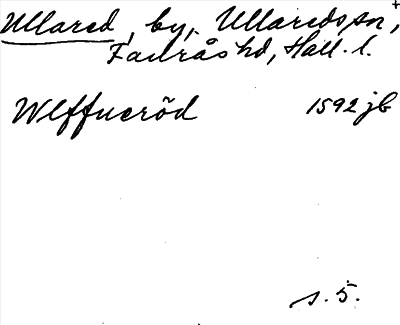 Ullared, by, Ullareds sn,
Faurås hd, Hall. l.
Wlffuerödh 1592 jb
s. 5.